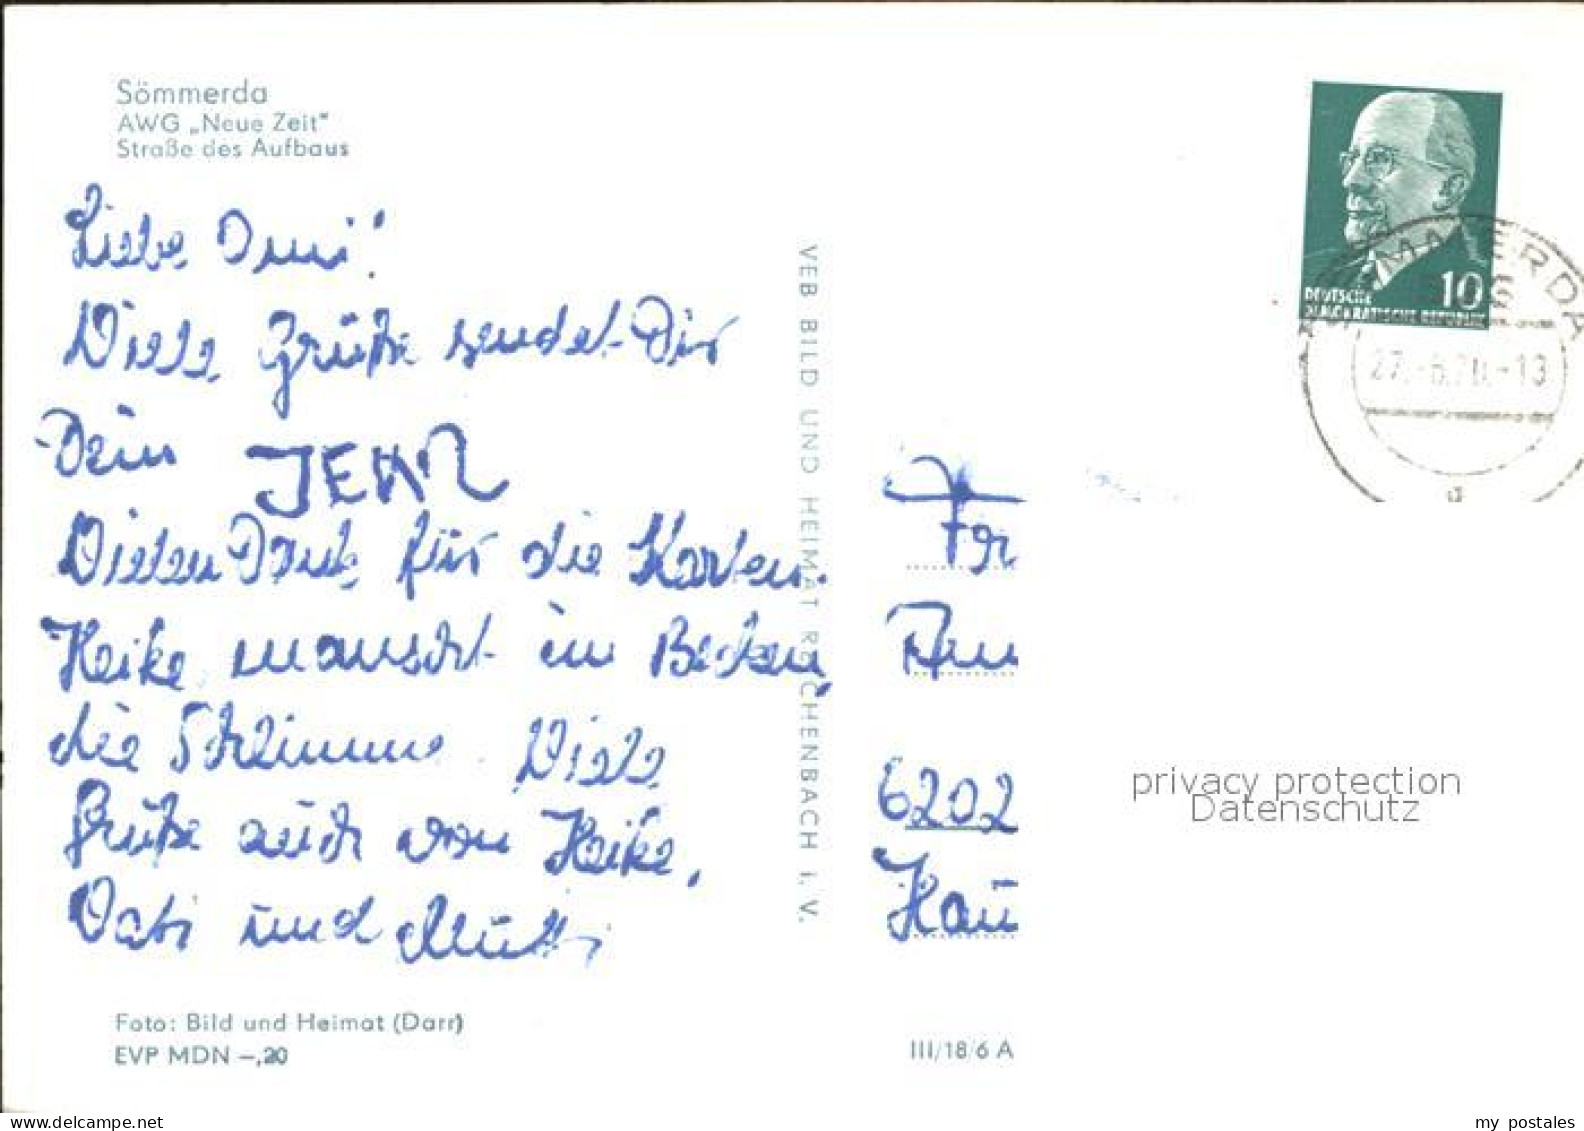 Sömmerda
AWG „Neue Zeit"
Straße des Aufbaus
Liebe Omi!
Viele Grüße sendet Dir
Dein JENZ
Vielen Dank für die Karten.
Heike manscht im Becken,
die Schlimme. Viele
Grüße auch von Heike,
Vati und Mutti
Foto: Bild und Heimat (Darr)
EVP MDN –,20
VEB BILD UND HEIMAT REICHENBACH i. V.
10
DEUTSCHE
DEMOKRATISCHE REPUBLIK
SÖMMERDA
27.-6.70.-13
a
Fr
6202
Hau
III/18/6 A
privacy protection
Datenschutz
my postales